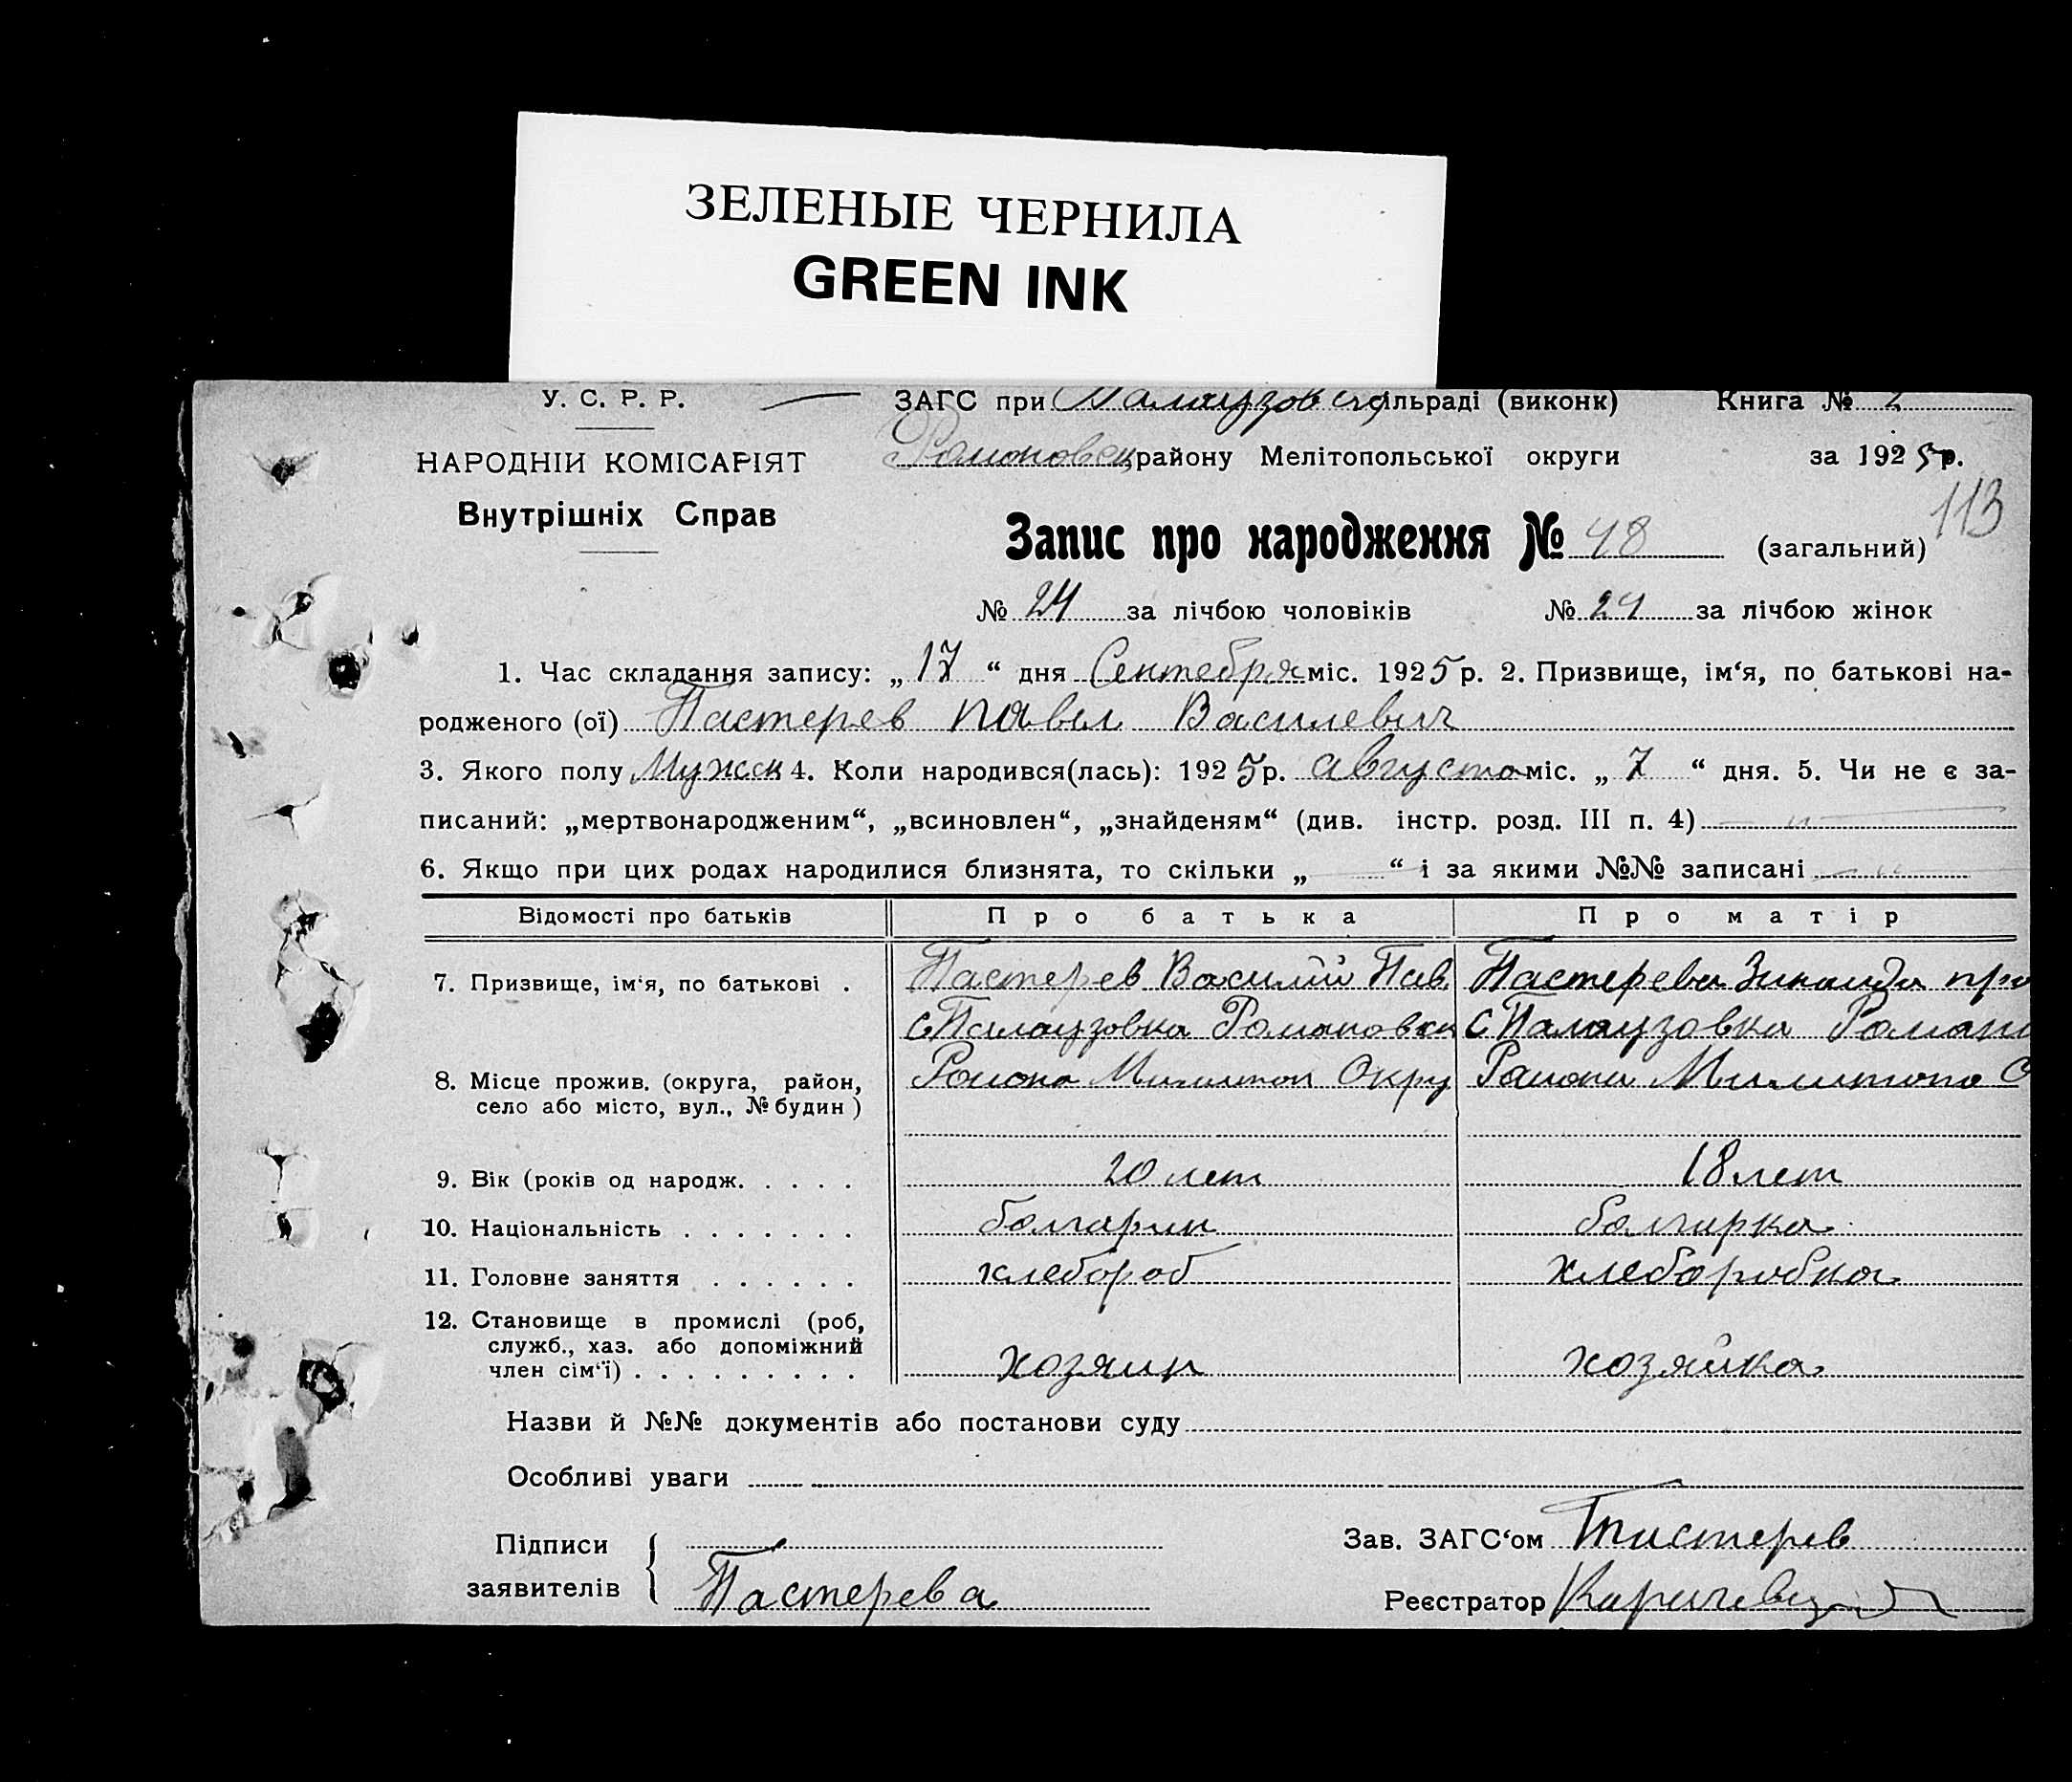 ЗЕЛЕНЫЕ ЧЕРНИЛА
GREEN INK
У. С. Р. Р. ЗАГС при Палаузовсільраді (виконк) Книга № 2
НАРОДНІЙ КОМІСАРІЯТ Романовец району Мелітопольської округи за 1925р.
Внутрішніх Справ
113
Запис про народження № 48 (загальний)
№ 24 за лічбою чоловіків № 24 за лічбою жінок
1. Час складання запису: „ 17 “ дня Сентебря міс. 1925 р. 2. Призвище, ім‘я, по батькові на-
родженого (ої) Пастерев Павел Василевич
3. Якого полу Мужск 4. Коли народився(лась): 1925р. августа міс. „ 7 “ дня. 5. Чи не є за-
писаний: „мертвонародженим“, „всиновлен“, „знайденям“ (див. інстр. розд. III п. 4) — " —
6. Якщо при цих родах народилися близнята, то скільки „ — “ і за якими №№ записані — " —
Відомості про батьків Про батька Про матір
7. Призвище, ім‘я, по батькові . Пастерев Василий Пав. Пастерева Зинаида про
с Палаузовка Романовск с Палаузовка Романо
8. Місце прожив. (округа, район, Района Милитоп Окру Района Милитопо О
село або місто, вул., № будин )
9. Вік (років од народж. . . . . 20 лет 18 лет
10. Національність . . . . . . . болгарин болгарка
11. Головне заняття . . . . . . хлебороб хлеборобка
12. Становище в промислі (роб,
служб., хаз. або допоміжний
член сім‘ї) . . . . . . . . . хозяин хозяйка
Назви й №№ документів або постанови суду
Особливі уваги
Підписи Зав. ЗАГС‘ом Пастерев
заявителів Пастерева Реєстратор